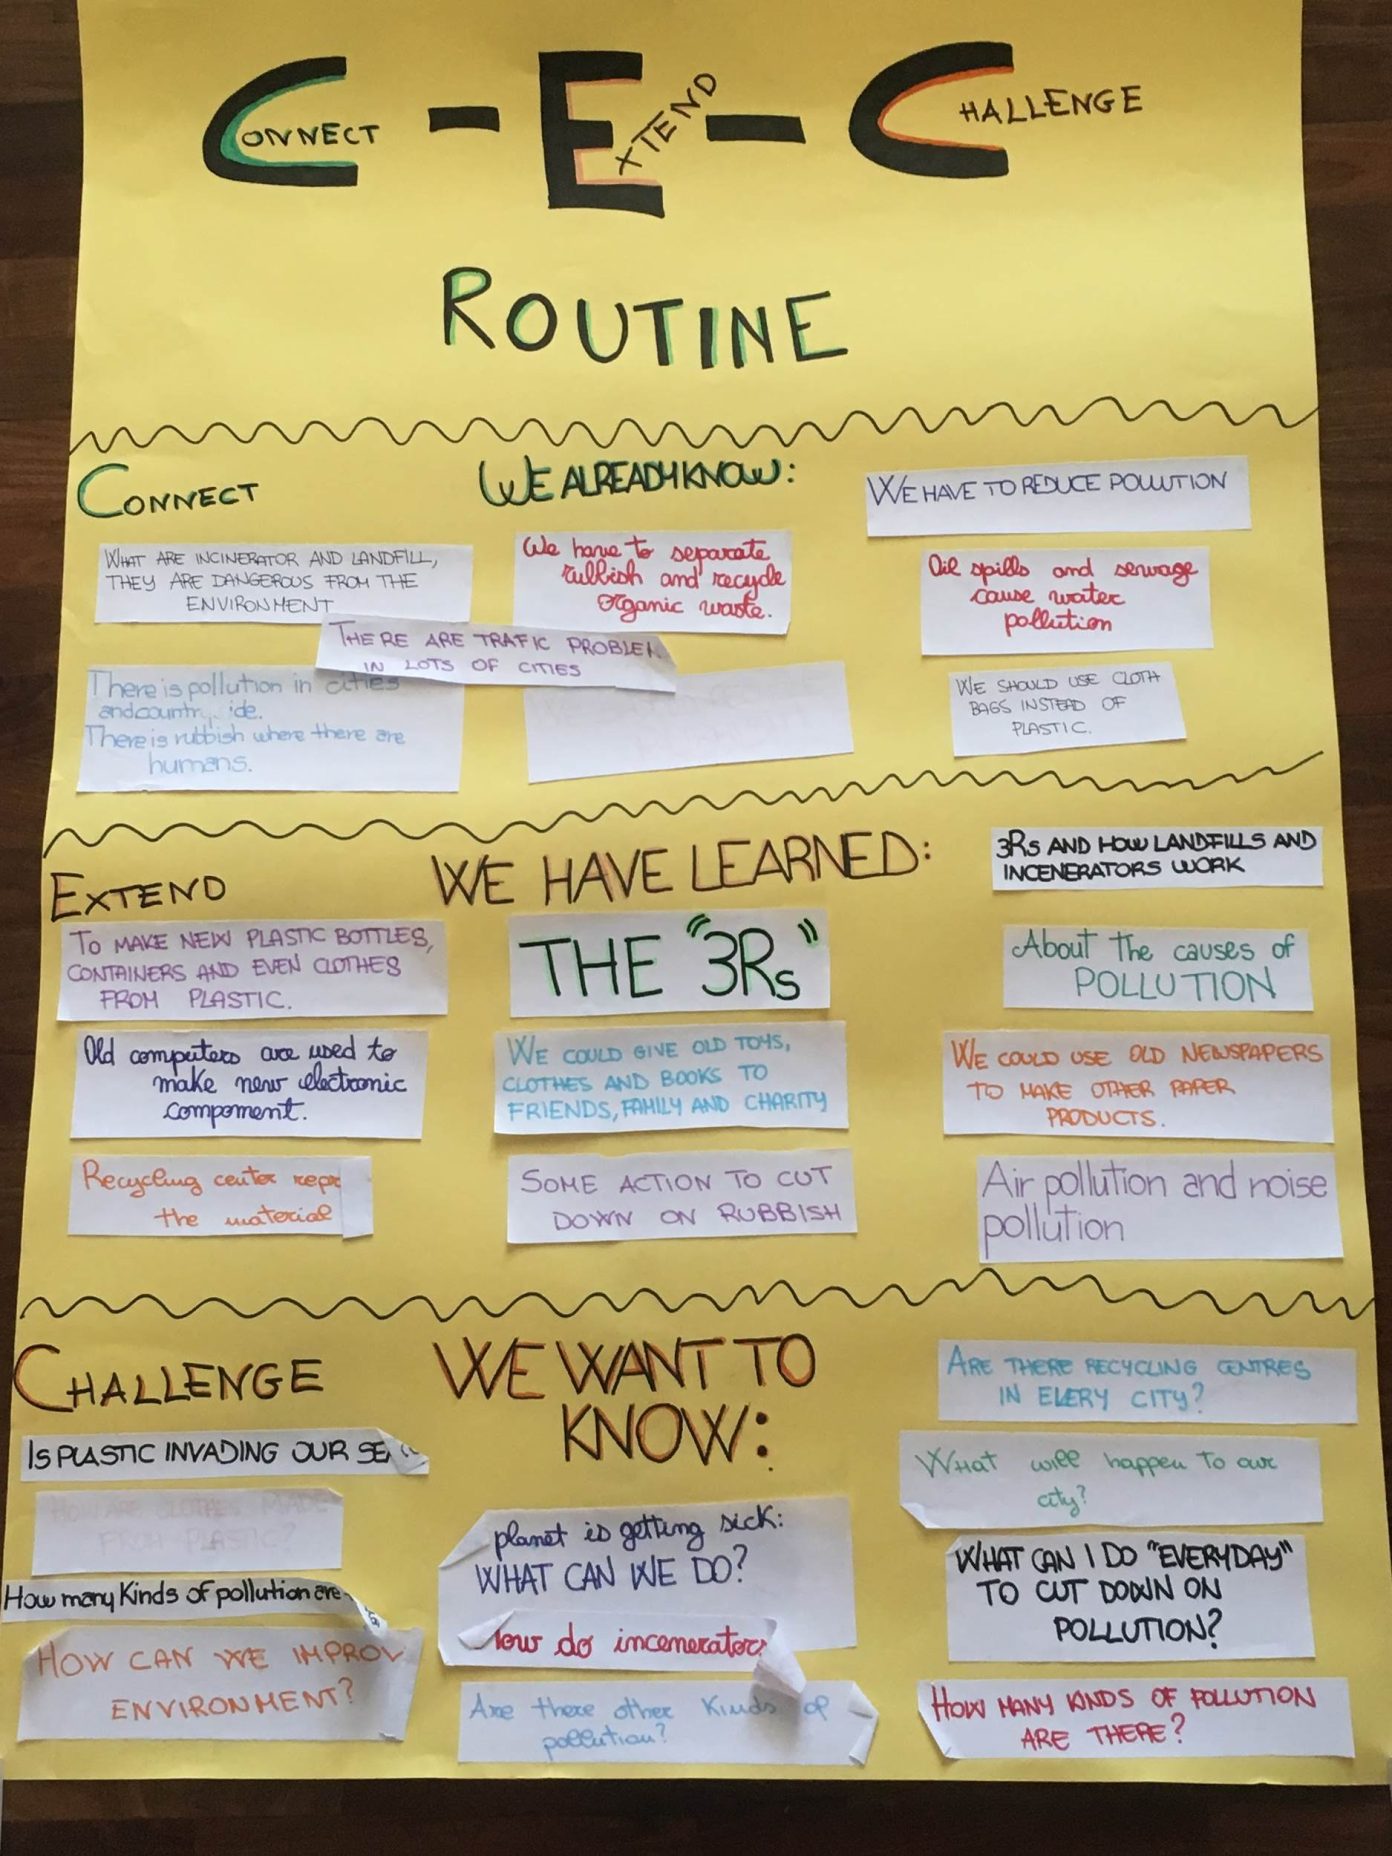 CONNECT - EXTEND - CHALLENGE
ROUTINE
CONNECT
WHAT ARE INCINERATOR AND LANDFILL,
THEY ARE DANGEROUS FROM THE
ENVIRONMENT
THERE ARE TRAFIC PROBLEM
IN LOTS OF CITIES
There is pollution in cities
and
There is rubbish where there are
humans.
WE ALREADY KNOW:
We have to separate
rubbish and recycle
organic waste.
WE HAVE TO REDUCE POLLUTION
Oil spills and sewage
cause water
pollution
WE SHOULD USE CLOTH
BAGS INSTEAD OF
PLASTIC.
EXTEND
TO MAKE NEW PLASTIC BOTTLES,
CONTAINERS AND EVEN CLOTHES
FROM PLASTIC.
Old computers are used to
make new electronic
component.
Recycling center
the material
WE HAVE LEARNED:
THE "3Rs"
WE COULD GIVE OLD TOYS,
CLOTHES AND BOOKS TO
FRIENDS, FAMILY AND CHARITY
SOME ACTION TO CUT
DOWN ON RUBBISH
3Rs AND HOW LANDFILLS AND
INCENERATORS WORK
About the causes of
POLLUTION
WE COULD USE OLD NEWSPAPERS
TO MAKE OTHER PAPER
PRODUCTS.
Air pollution and noise
pollution
CHALLENGE
IS PLASTIC INVADING OUR
HOW ARE CLOTHES MADE
FROM PLASTIC?
How many Kinds of pollution are
HOW CAN WE IMPROV
ENVIRONMENT?
WE WANT TO
KNOW:
planet is getting sick:
WHAT CAN WE DO?
How do incenerators
Are there other Kinds of
pollution?
ARE THERE RECYCLING CENTRES
IN EVERY CITY?
What will happen to our
city?
WHAT CAN I DO "EVERYDAY"
TO CUT DOWN ON
POLLUTION?
HOW MANY KINDS OF POLLUTION
ARE THERE?